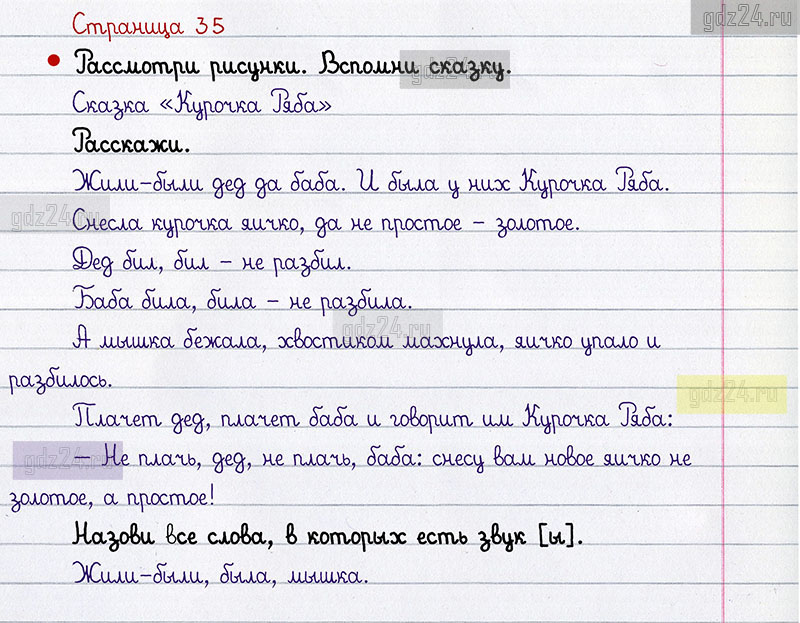 gdz24.ru
Страница 35
Рассмотри рисунки. Вспомни сказку.
gdz24.ru
Сказка «Курочка Ряба»
Расскажи.
Жили-были дед да баба. И была у них Курочка Ряба.
gdz24.ru
Снесла курочка яичко, да не простое – золотое.
Дед бил, бил – не разбил.
Баба била, била – не разбила.
gdz24.ru
А мышка бежала, хвостиком махнула, яичко упало и
разбилось.
gdz24.ru
Плачет дед, плачет баба и говорит им Курочка Ряба:
– Не плачь, дед, не плачь, баба: снесу вам новое яичко не
gdz24.ru
золотое, а простое!
Назови все слова, в которых есть звук [ы].
Жили-были, была, мышка.